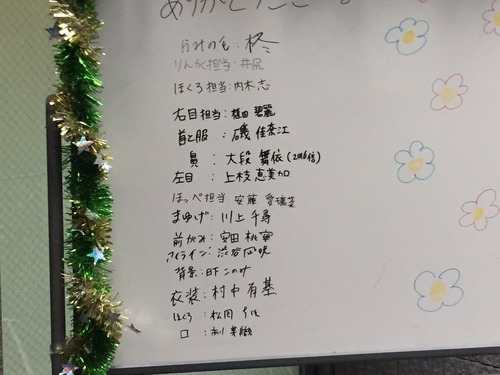 ありがとうご
かみのも:柊
りんかく担当:井尻
ほくろ担当:内木志
右目担当:植田碧麗
首と服:磯佳奈江
鼻:大段舞依(2016倍)
左目:上枝恵美加
ほっぺ担当 安藤愛璃菜
まゆげ:川上千尋
前がみ:安田桃寧
アイライン:渋谷凪咲
背景:日下このみ
衣装:村中有基
ほくろ:松岡
口: